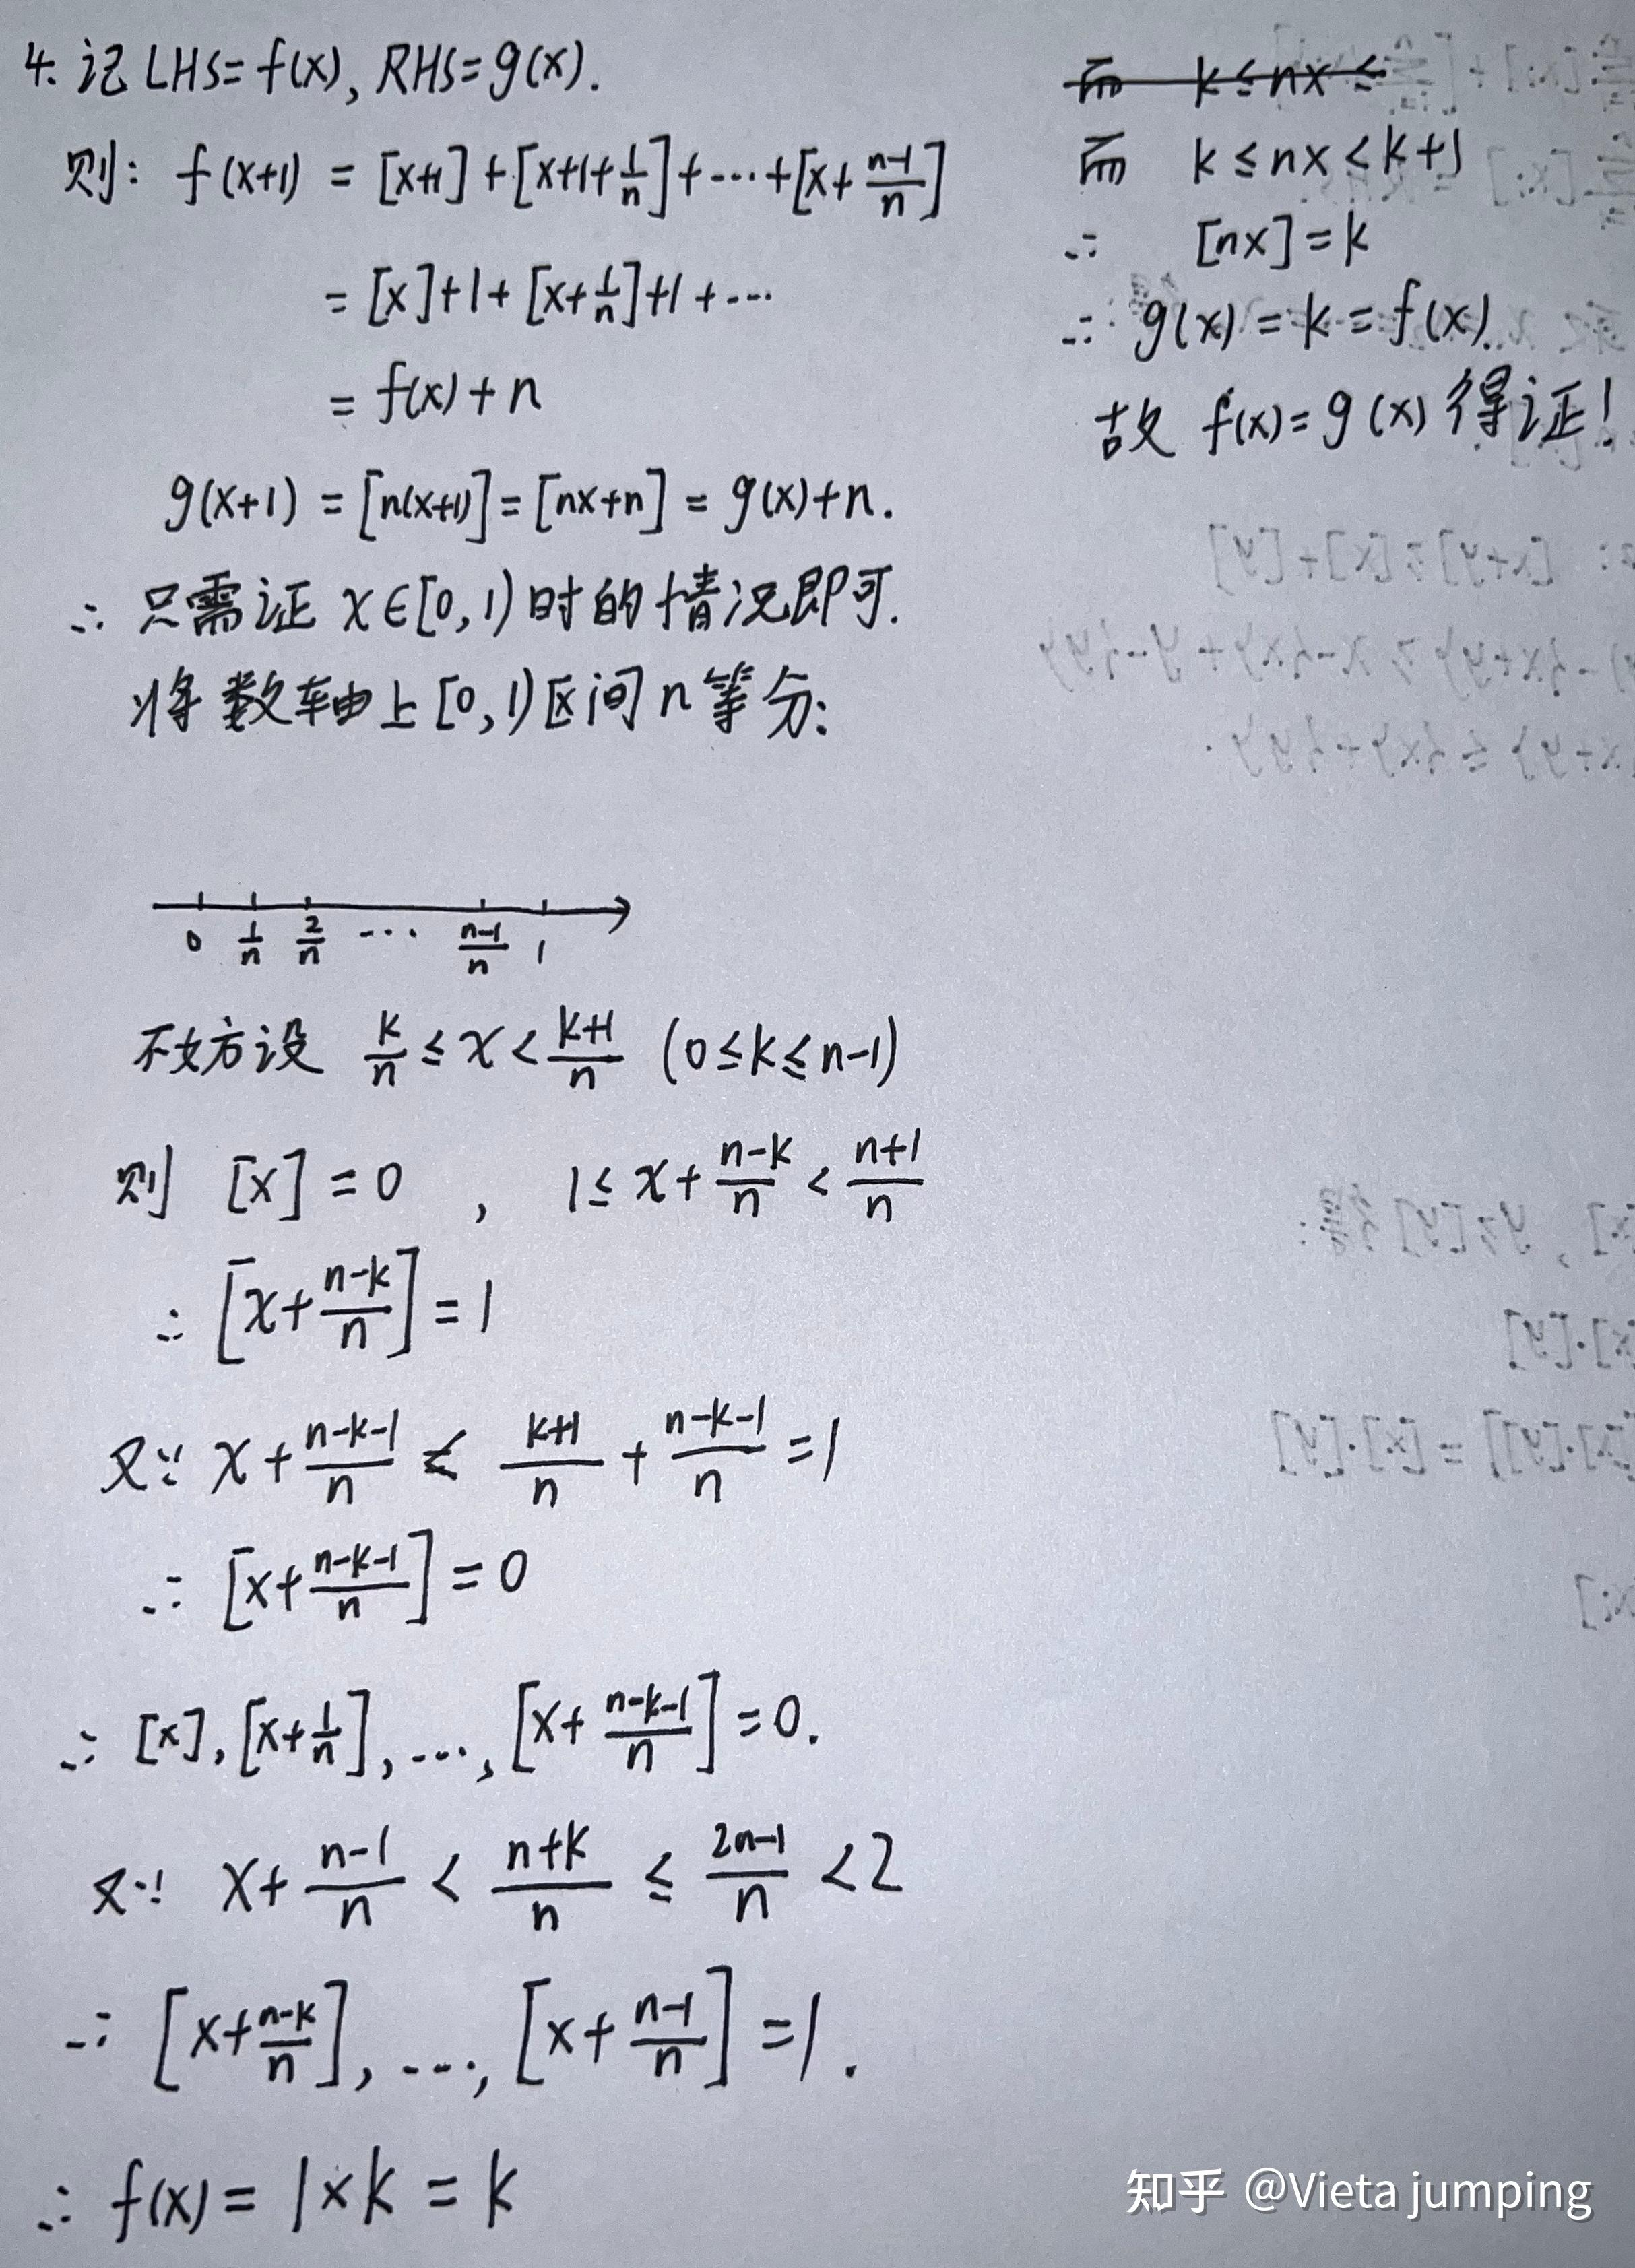 4. 记 LHS=f(x), RHS=g(x).
则: f(x+1) = [x+1]+[x+1+1/n]+⋯+[x+(n-1)/n]
= [x]+1+[x+1/n]+1+⋯
= f(x)+n
g(x+1) = [n(x+1)] = [nx+n] = g(x)+n.
∴ 只需证 x∈[0,1)时的情况即可.
将数轴上[0,1)区间n等分:
0 1/n 2/n ⋯ (n-1)/n 1
不妨设 k/n ≤ x < (k+1)/n (0≤k≤n-1)
则 [x]=0 , 1≤ x+(n-k)/n < (n+1)/n
∴ [x+(n-k)/n] = 1
又∵ x+(n-k-1)/n < (k+1)/n + (n-k-1)/n = 1
∴ [x+(n-k-1)/n] = 0
∴ [x],[x+1/n],⋯,[x+(n-k-1)/n]=0.
又∵ x+(n-1)/n < (n+k)/n ≤ (2n-1)/n < 2
∴ [x+(n-k)/n],⋯,[x+(n-1)/n]=1.
∴ f(x) = 1×k = k
而 k≤nx≤
而 k≤nx<k+1
∴ [nx]=k
∴ g(x)=k=f(x).
故 f(x)=g(x) 得证!
知乎 @Vieta jumping